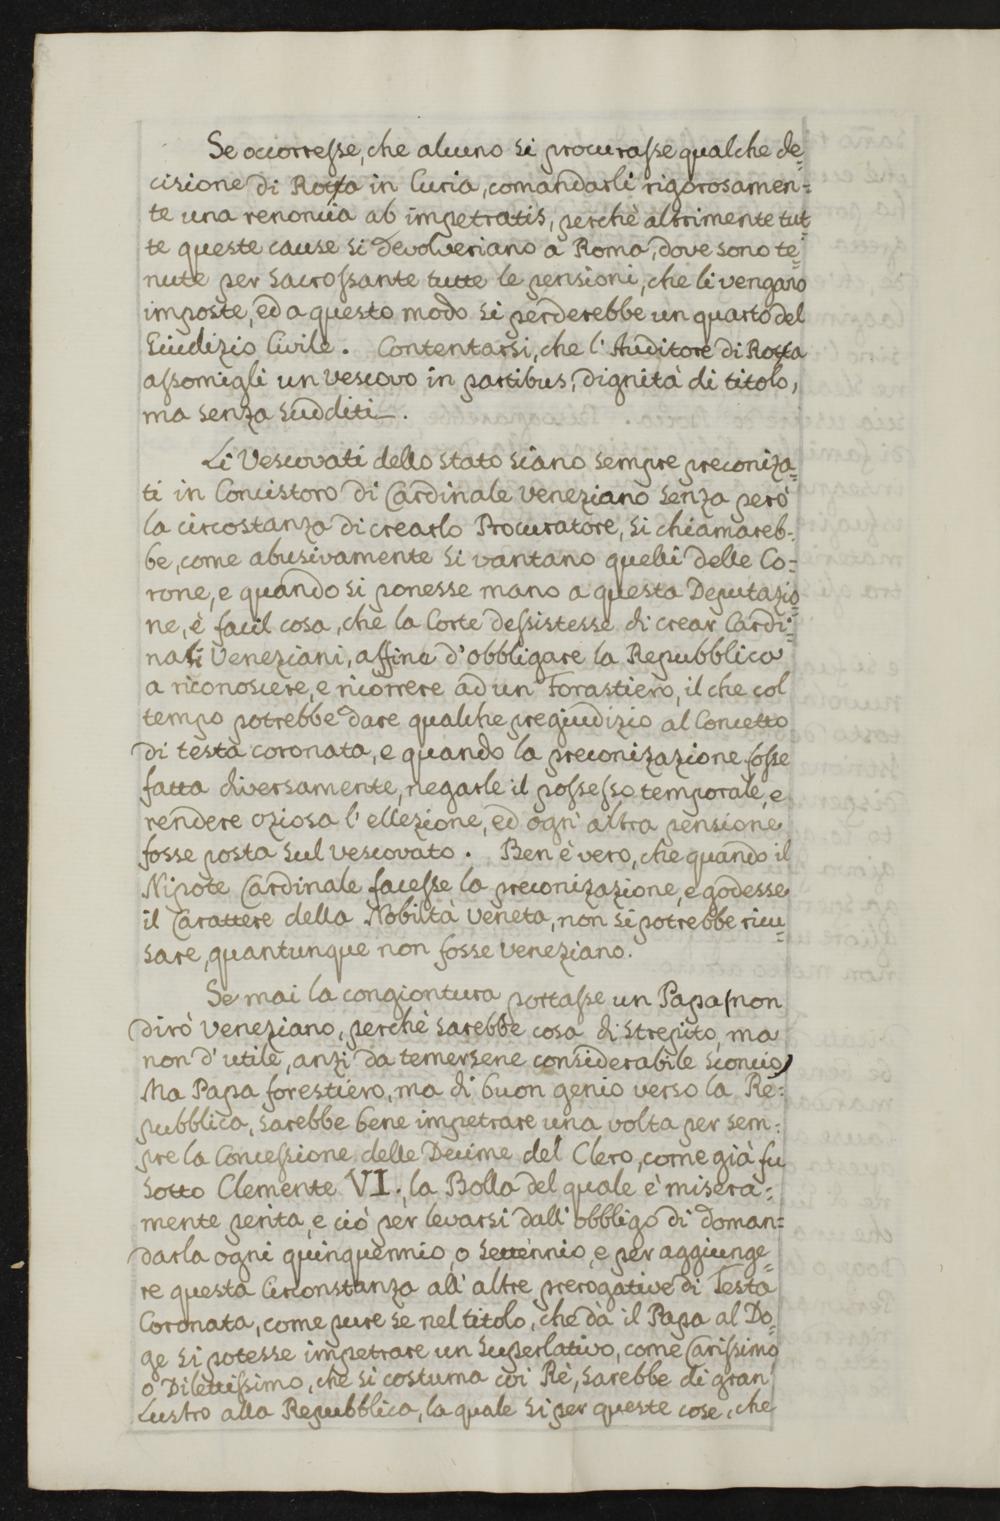 Se occorresse, che alcuno si procurasse qualche de=
cisione di Rotta in Curia, comandarli rigorosamen=
te una renoncia ab impetratis, perchè altrimente tut
te queste cause si devolveriano à Roma, dove sono te=
nute per sacrossante tutte le pensioni, che li vengano
imposte, ed a questo modo si perderebbe un quarto del
Giudizio Civile. Contentarsi, che l'Auditore di Rotta
assomigli un Vescovo in partibus, dignità di titolo,
ma senza sudditi.
Li Vescovati dello stato siano sempre preconiza=
ti in Concistoro di Cardinale Veneziano senza però
la circostanza di crearlo Procuratore, si chiamareb-
be, come abusivamente si vantano quelli delle Co=
rone, e quando si ponesse mano a questa Deputazio=
ne, è facil cosa, che la Corte dessistesse di crear Cardi=
nali Veneziani, affine d'obbligare la Repubblica
a riconoscere, e ricorrere ad un Forastiero, il che col
tempo potrebbe dare qualche pregiudizio al Concetto
di testa coronata, e quando la preconizazione fosse
fatta diversamente, negarle il possesso temporale, e
rendere oziosa l'ellezione, ed ogn'altra pensione
fosse posta sul vescovato. Ben è vero, che quando il
Nipote Cardinale facesse la preconizazione, e godesse
il Carattere della Nobiltà Veneta, non si potrebbe ricu=
sare, quantunque non fosse Veneziano.
Se mai la congiontura portasse un Papa (non
dirò Veneziano, perchè sarebbe cosa di strepito, ma
non d'utile, anzi da temersene considerabile sconcio)
Ma Papa forestiero, ma di buon genio verso la Re=
pubblica, sarebbe bene impetrare una volta per sem=
pre la Concessione delle Decime del Clero, come già fu
sotto Clemente VI. la Bolla del quale è misera=
mente perita, e ciò per levarsi dall'obbligo di doman=
darla ogni quinquennio, o settennio, e per aggiunge=
re questa Circonstanza all'altre prerogative di Testa
Coronata, come pure se nel titolo, che dà il Papa al Do=
ge si potesse impetrare un superlativo, come Carissimo
o Dilettissimo, che si costuma coi Rè, sarebbe di gran
Lustro alla Repubblica, la quale si per queste cose, che